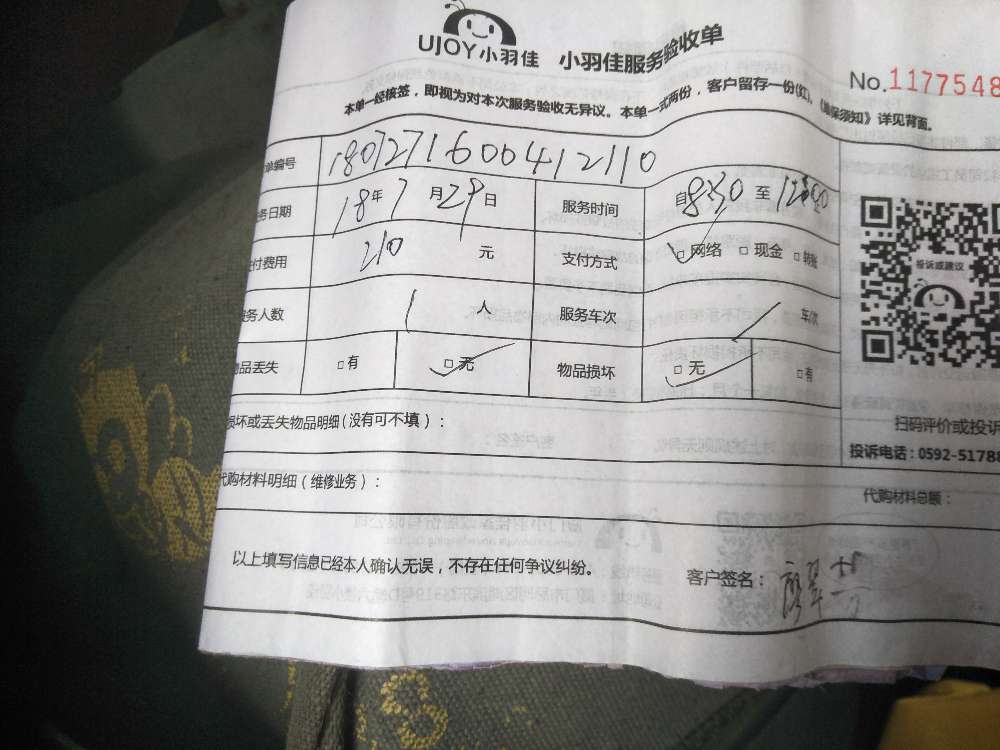 UJOY小羽佳 小羽佳服务验收单
No.1177548
本单一经核签，即视为对本次服务验收无异议。本单一式两份，客户留存一份(红)。《保须知》详见背面。
单编号 180727160041 2110
务日期 18年7月29日 服务时间 自8:30至
付费用 210元 支付方式 □网络 □现金 □转账
服务人数 1人 服务车次 车次
物品丢失 □有 □无 物品损坏 □无 □有
投诉或建议
损坏或丢失物品明细(没有可不填)：
扫码评价或投诉
投诉电话：0592-51788
代购材料明细(维修业务)：
代购材料总额：
以上填写信息已经本人确认无误，不存在任何争议纠纷。
客户签名：廖翠